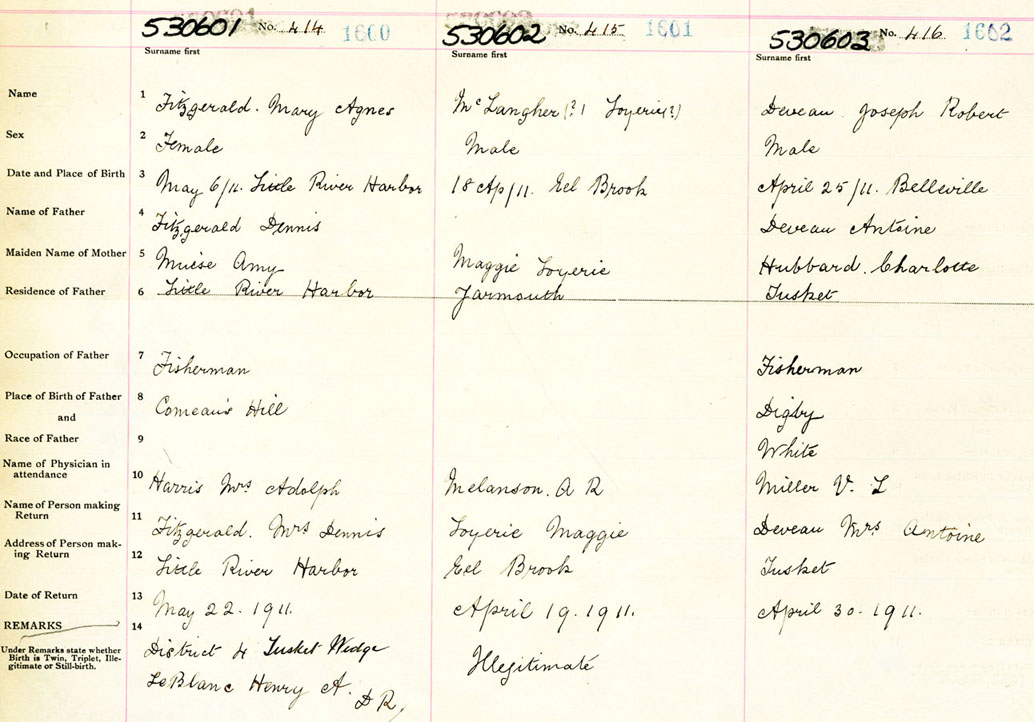 530601 No. 414 1600 530602 No. 415 1601 530603 No. 416 1602
Surname first Surname first Surname first
Name 1 Fitzgerald. Mary Agnes McLangher (?) Loyerie(?) Deveau Joseph Robert
Sex 2 Female Male Male
Date and Place of Birth 3 May 6/11. Little River Harbor 18 Ap/11. Eel Brook April 25/11. Belleville
Name of Father 4 Fitzgerald Dennis Deveau Antoine
Maiden Name of Mother 5 Muise Amy Maggie Loyerie Hubbard. Charlotte
Residence of Father 6 Little River Harbor Yarmouth Tusket
Occupation of Father 7 Fisherman Fisherman
Place of Birth of Father 8 Comeau's Hill Digby
and
Race of Father 9 White
Name of Physician in
attendance 10 Harris Mrs Adolph Melanson. A R Miller V. L
Name of Person making
Return 11 Fitzgerald. Mrs Dennis Loyerie Maggie Deveau Mrs Antoine
Address of Person mak-
ing Return 12 Little River Harbor Eel Brook Tusket
Date of Return 13 May 22. 1911. April 19. 1911. April 30. 1911.
REMARKS 14
Under Remarks state whether
Birth is Twin, Triplet, Ille-
gitimate or Still-birth.
District 4 Tusket Wedge Illegitimate
LeBlanc Henry A. D R,